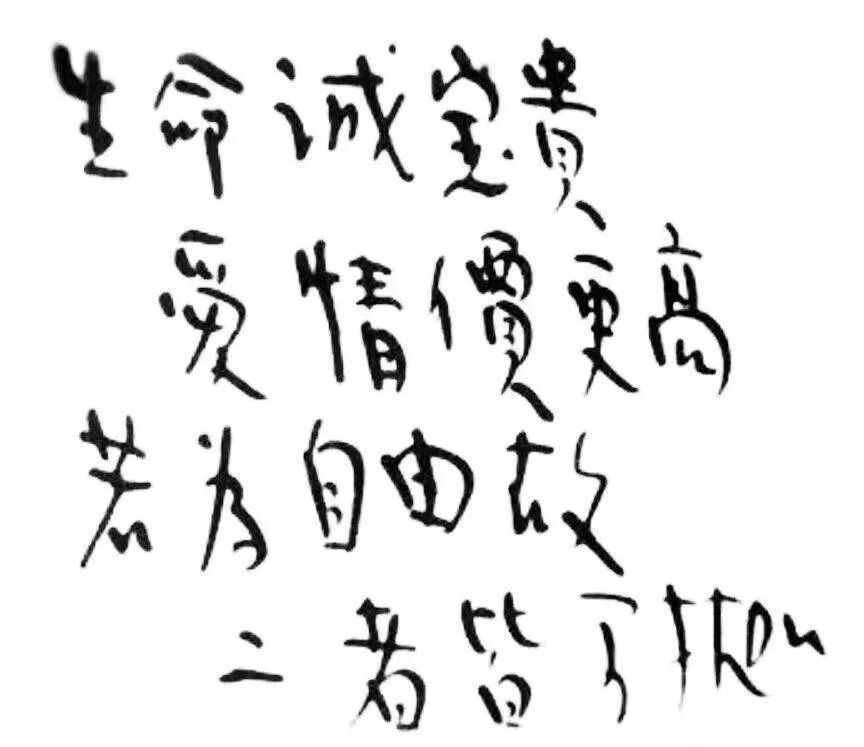 生命诚宝貴
愛情價更高
若为自由故
二者皆可抛